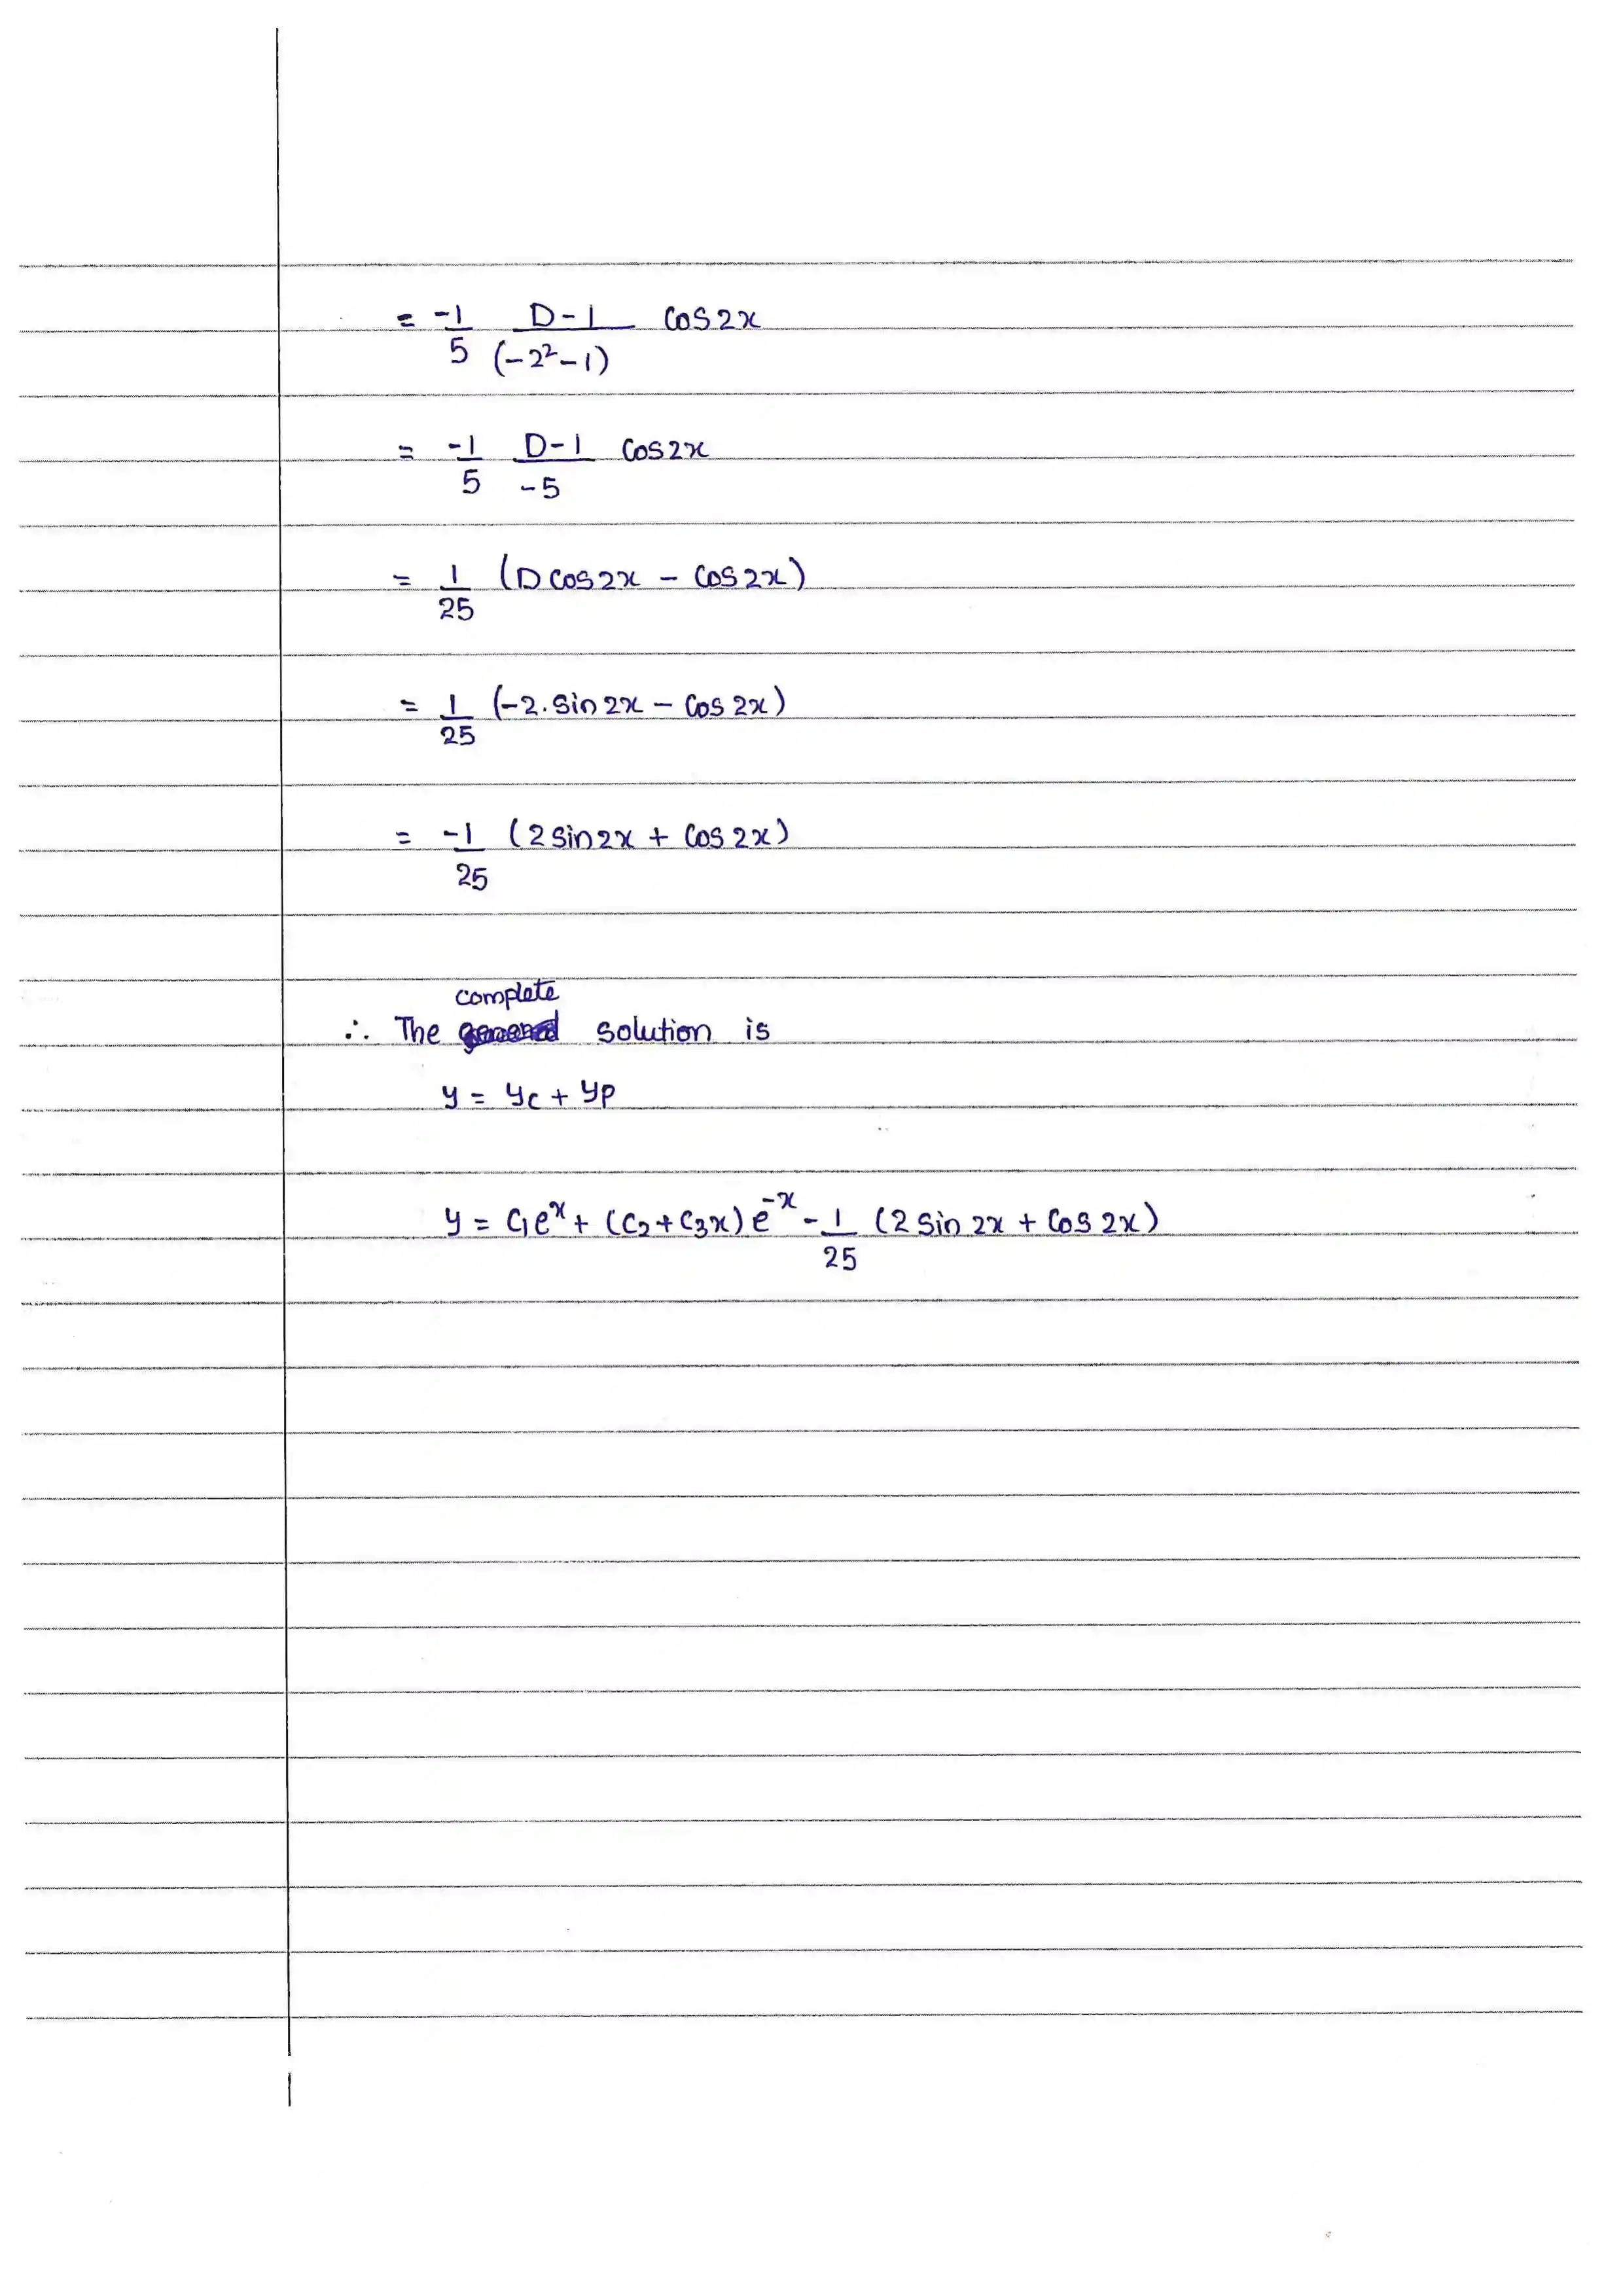 = -1/5 D-1/(-2²-1) cos2x
= -1/5 D-1/-5 cos2x
= 1/25 (D cos2x - cos2x)
= 1/25 (-2.sin2x - cos2x)
= -1/25 (2sin2x + cos2x)
complete
∴ The solution is
y = yc + yp
y = c₁eˣ + (c₂+c₃x)e⁻ˣ - 1/25 (2 sin 2x + cos 2x)